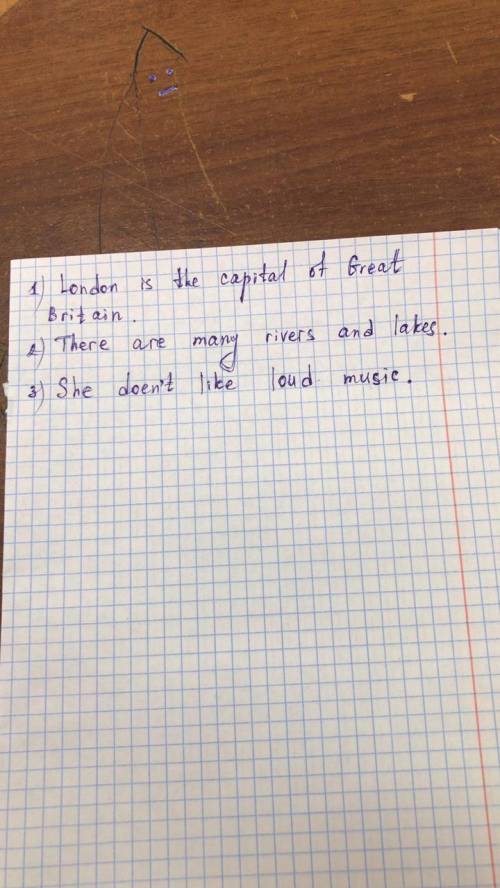 1) London is the capital of Great
Britain.
2) There are many rivers and lakes.
3) She doen't like loud music.